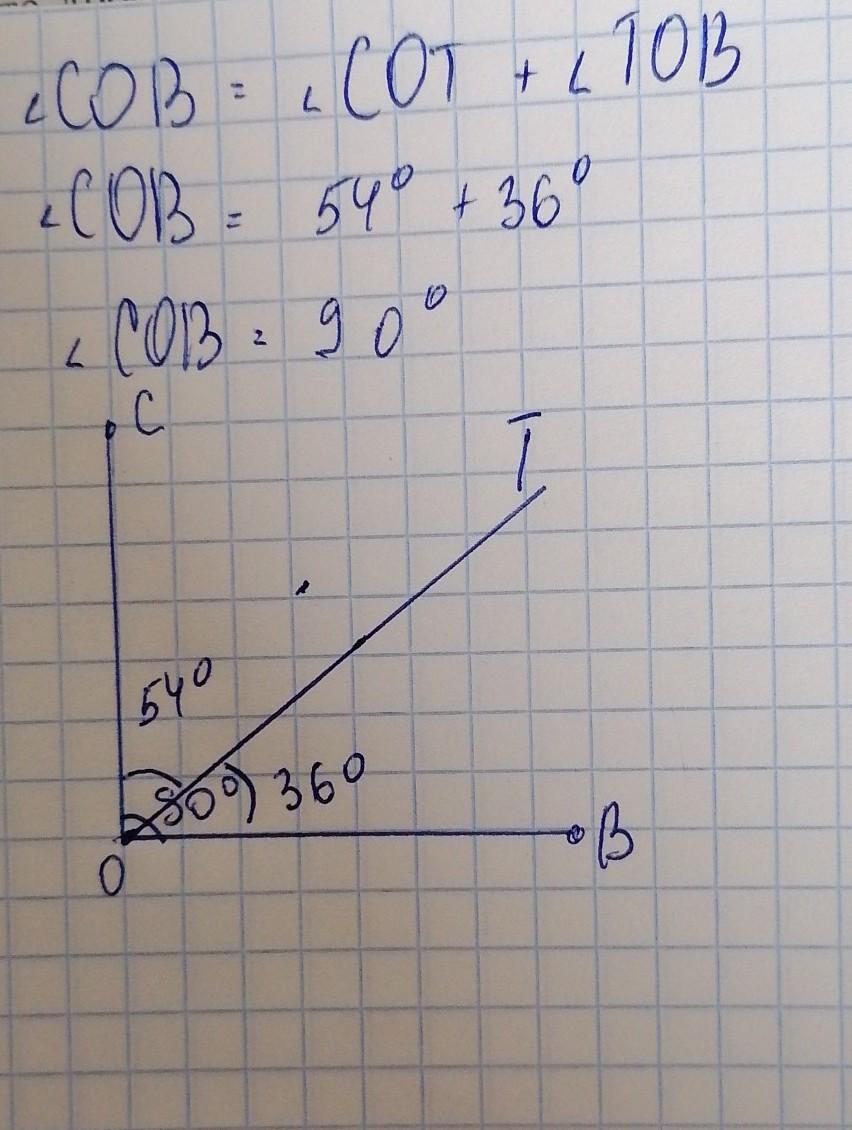 ∠COB = ∠COT + ∠TOB
∠COB = 54° + 36°
∠COB = 90°
C
T
54°
90°
36°
B
O